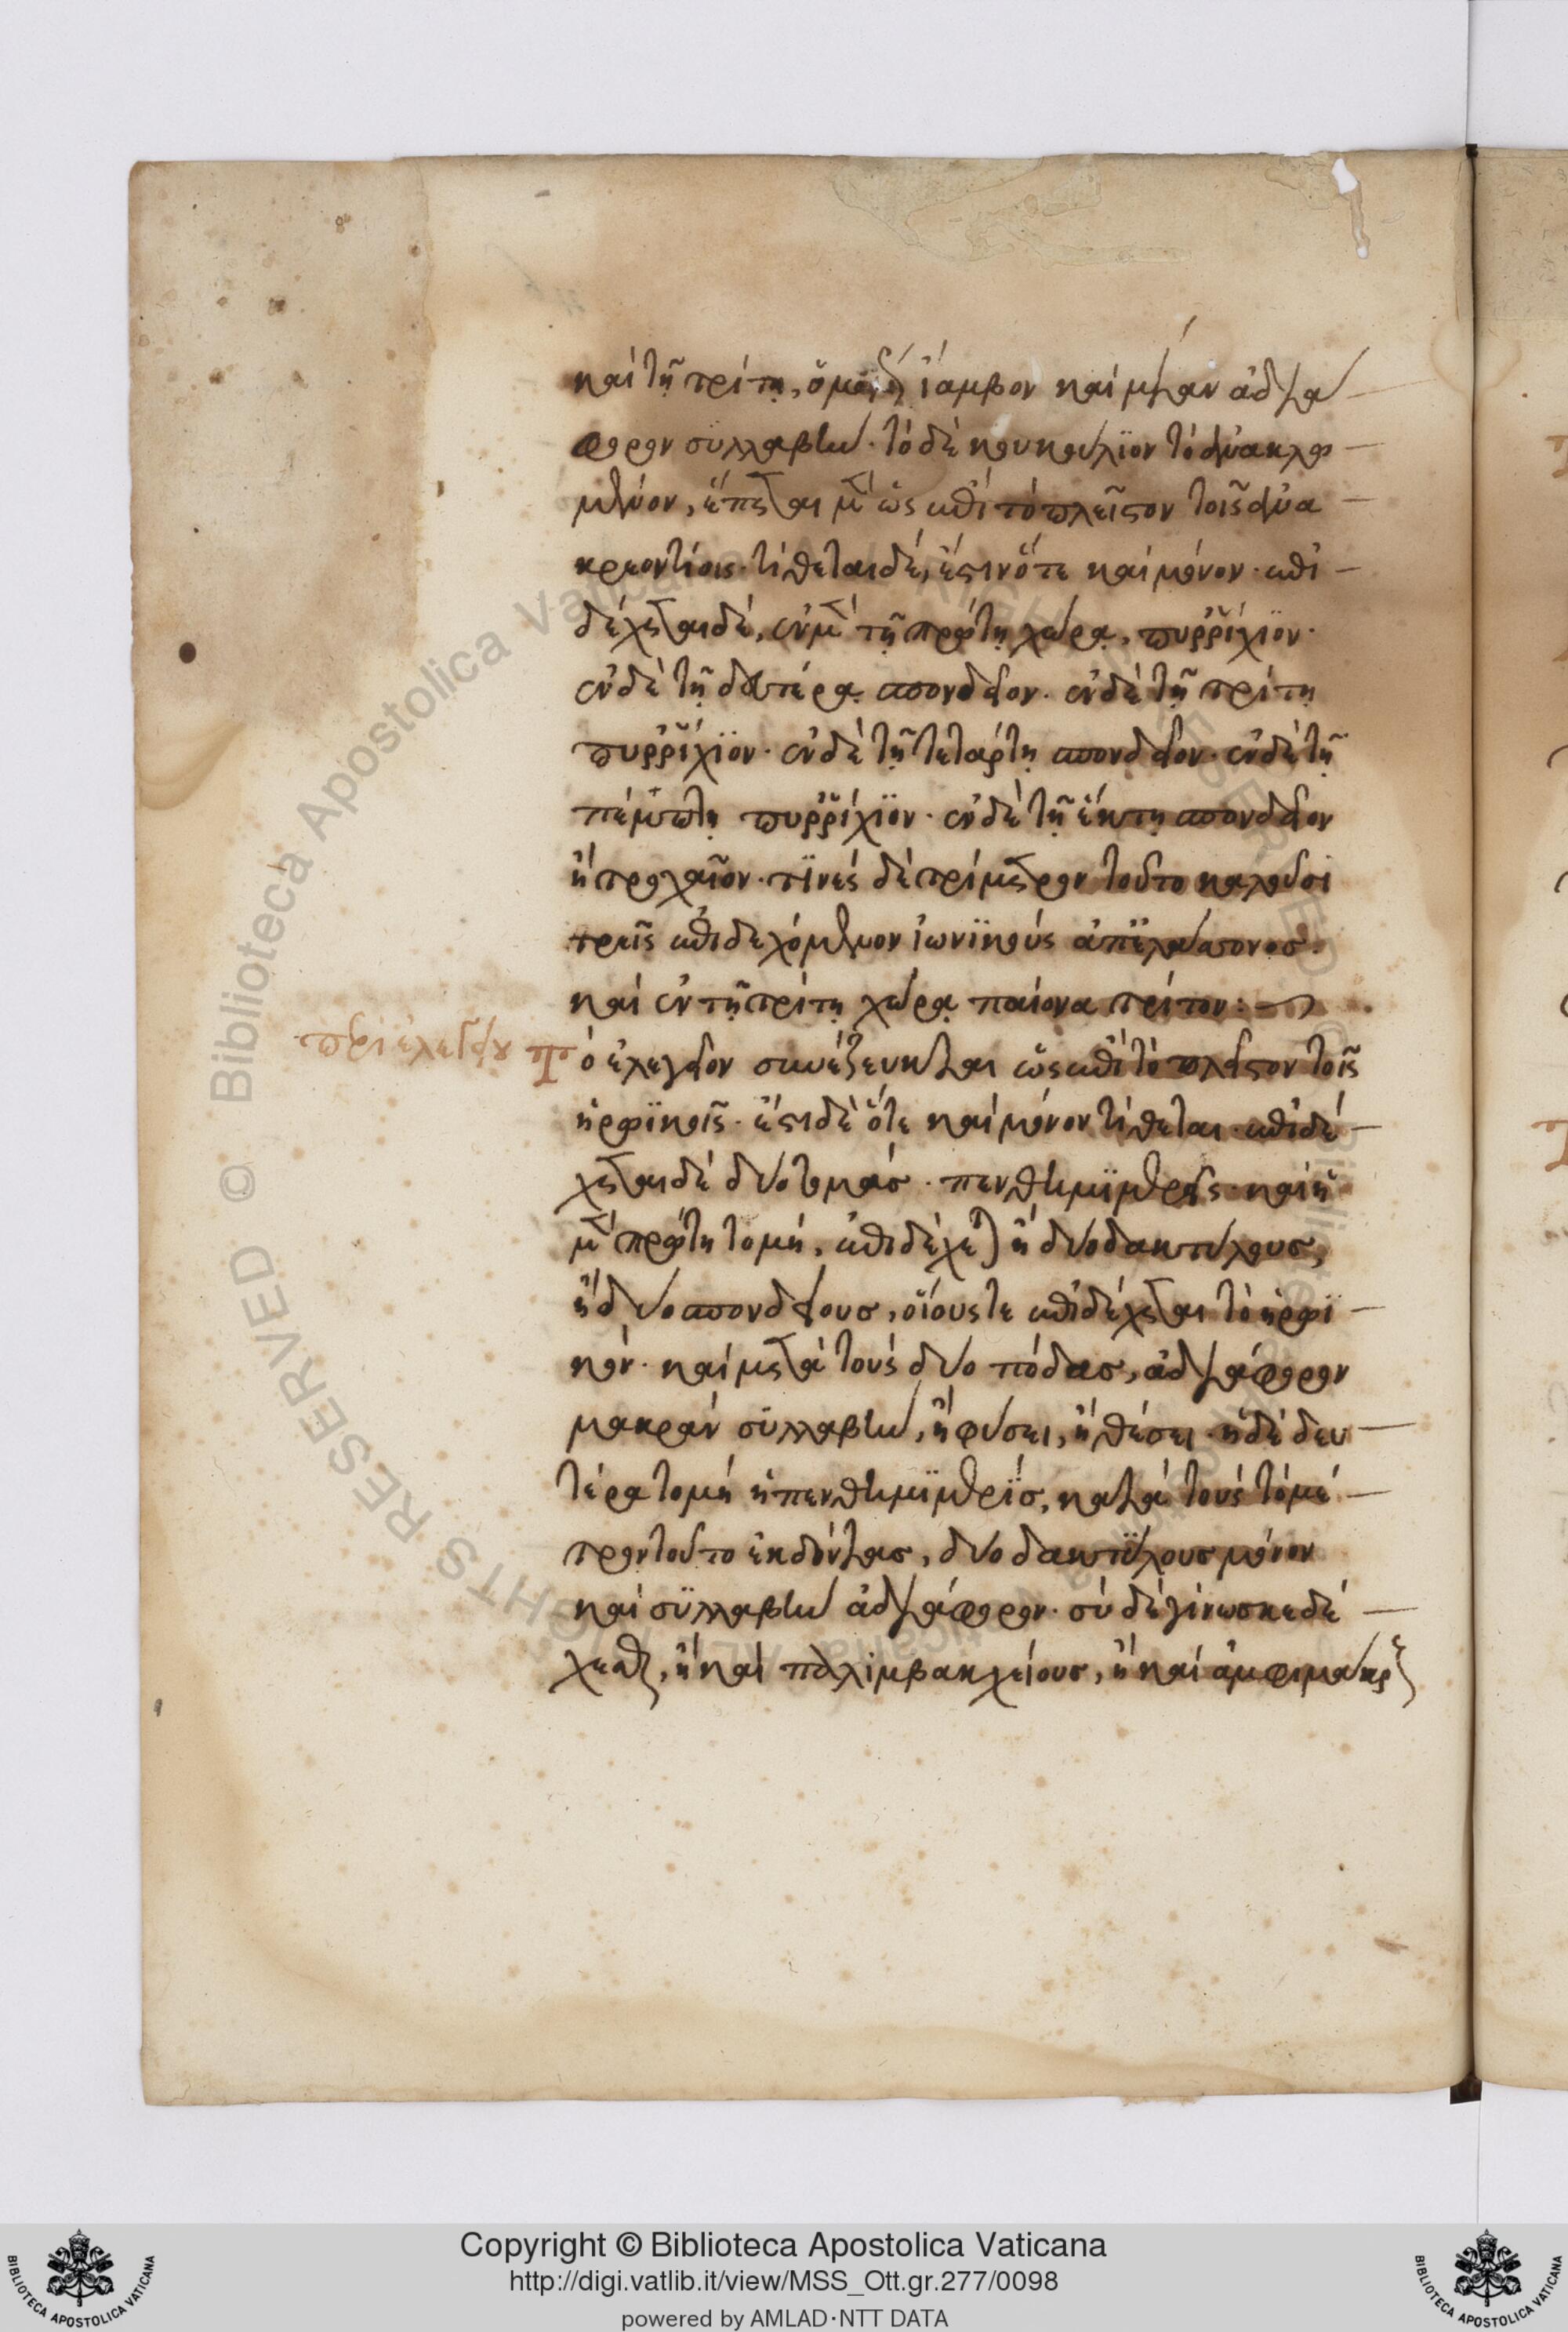 καὶ τῇ τρίτῃ, ὁμοῦ ἴαμβον καὶ μίαν ἀδιά
φορον συλλαβήν· τὸ δὲ κουκούλιον τὸ ἀνακλώ
μενον, ἕπεται μὲν ὡς ἐπὶ τὸ πλεῖστον τοῖς ἀνα
κρεοντίοις· τίθεται δὲ, ἔστιν ὅτε καὶ μόνον· ἐπι
δέχεται δὲ, ἐν μὲν τῇ πρώτῃ χώρᾳ, πυρρίχιον·
ἐν δὲ τῇ δευτέρᾳ σπονδεῖον· ἐν δὲ τῇ τρίτῃ
πυρρίχιον· ἐν δὲ τῇ τετάρτῃ σπονδεῖον· ἐν δὲ τῇ
πέμπτῃ πυρρίχιον· ἐν δὲ τῇ ἕκτῃ σπονδεῖον
ἢ τροχαῖον· τινὲς δὲ τρίμετρον τοῦτο καλοῦσι
τρεῖς ἐπιδεχόμενον ἰωνικοὺς ἀπ' ἐλάσσονος·
καὶ ἐν τῇ τρίτῃ χώρᾳ παίονα τρίτον:
Τὸ ἐλεγεῖον συνέζευκται ὡς ἐπὶ τὸ πλεῖστον τοῖς
ἡρωϊκοῖς· ἔστι δὲ ὅτε καὶ μόνον τίθεται· ἐπιδέ
χεται δὲ δύο τομάς· πενθημιμερεῖς· καὶ ἡ
μὲν πρώτη τομή, ἐπιδέχεται ἢ δύο δακτύλους,
ἢ δύο σπονδείους, οἵους τε ἐπιδέχεται τὸ ἡρωϊ
κόν· καὶ μετὰ τοὺς δύο πόδας, ἀδιάφορον
μακρὰν συλλαβήν, ἢ φύσει, ἢ θέσει· ἡ δὲ δευ
τέρα τομὴ ἡ πενθημιμερὶς, κατὰ τοὺς τὸ μέ
τρον τοῦτο ἐκδόντας, δύο δακτύλους μόνον
καὶ συλλαβὴν ἀδιάφορον· σὺ δὲ γίνωσκε δέ
χεσθαι, ἢ καὶ παλιμβακχείους, ἢ καὶ ἀμφιμάκρους
Copyright © Biblioteca Apostolica Vaticana
http://digi.vatlib.it/view/MSS_Ott.gr.277/0098
powered by AMLAD·NTT DATA